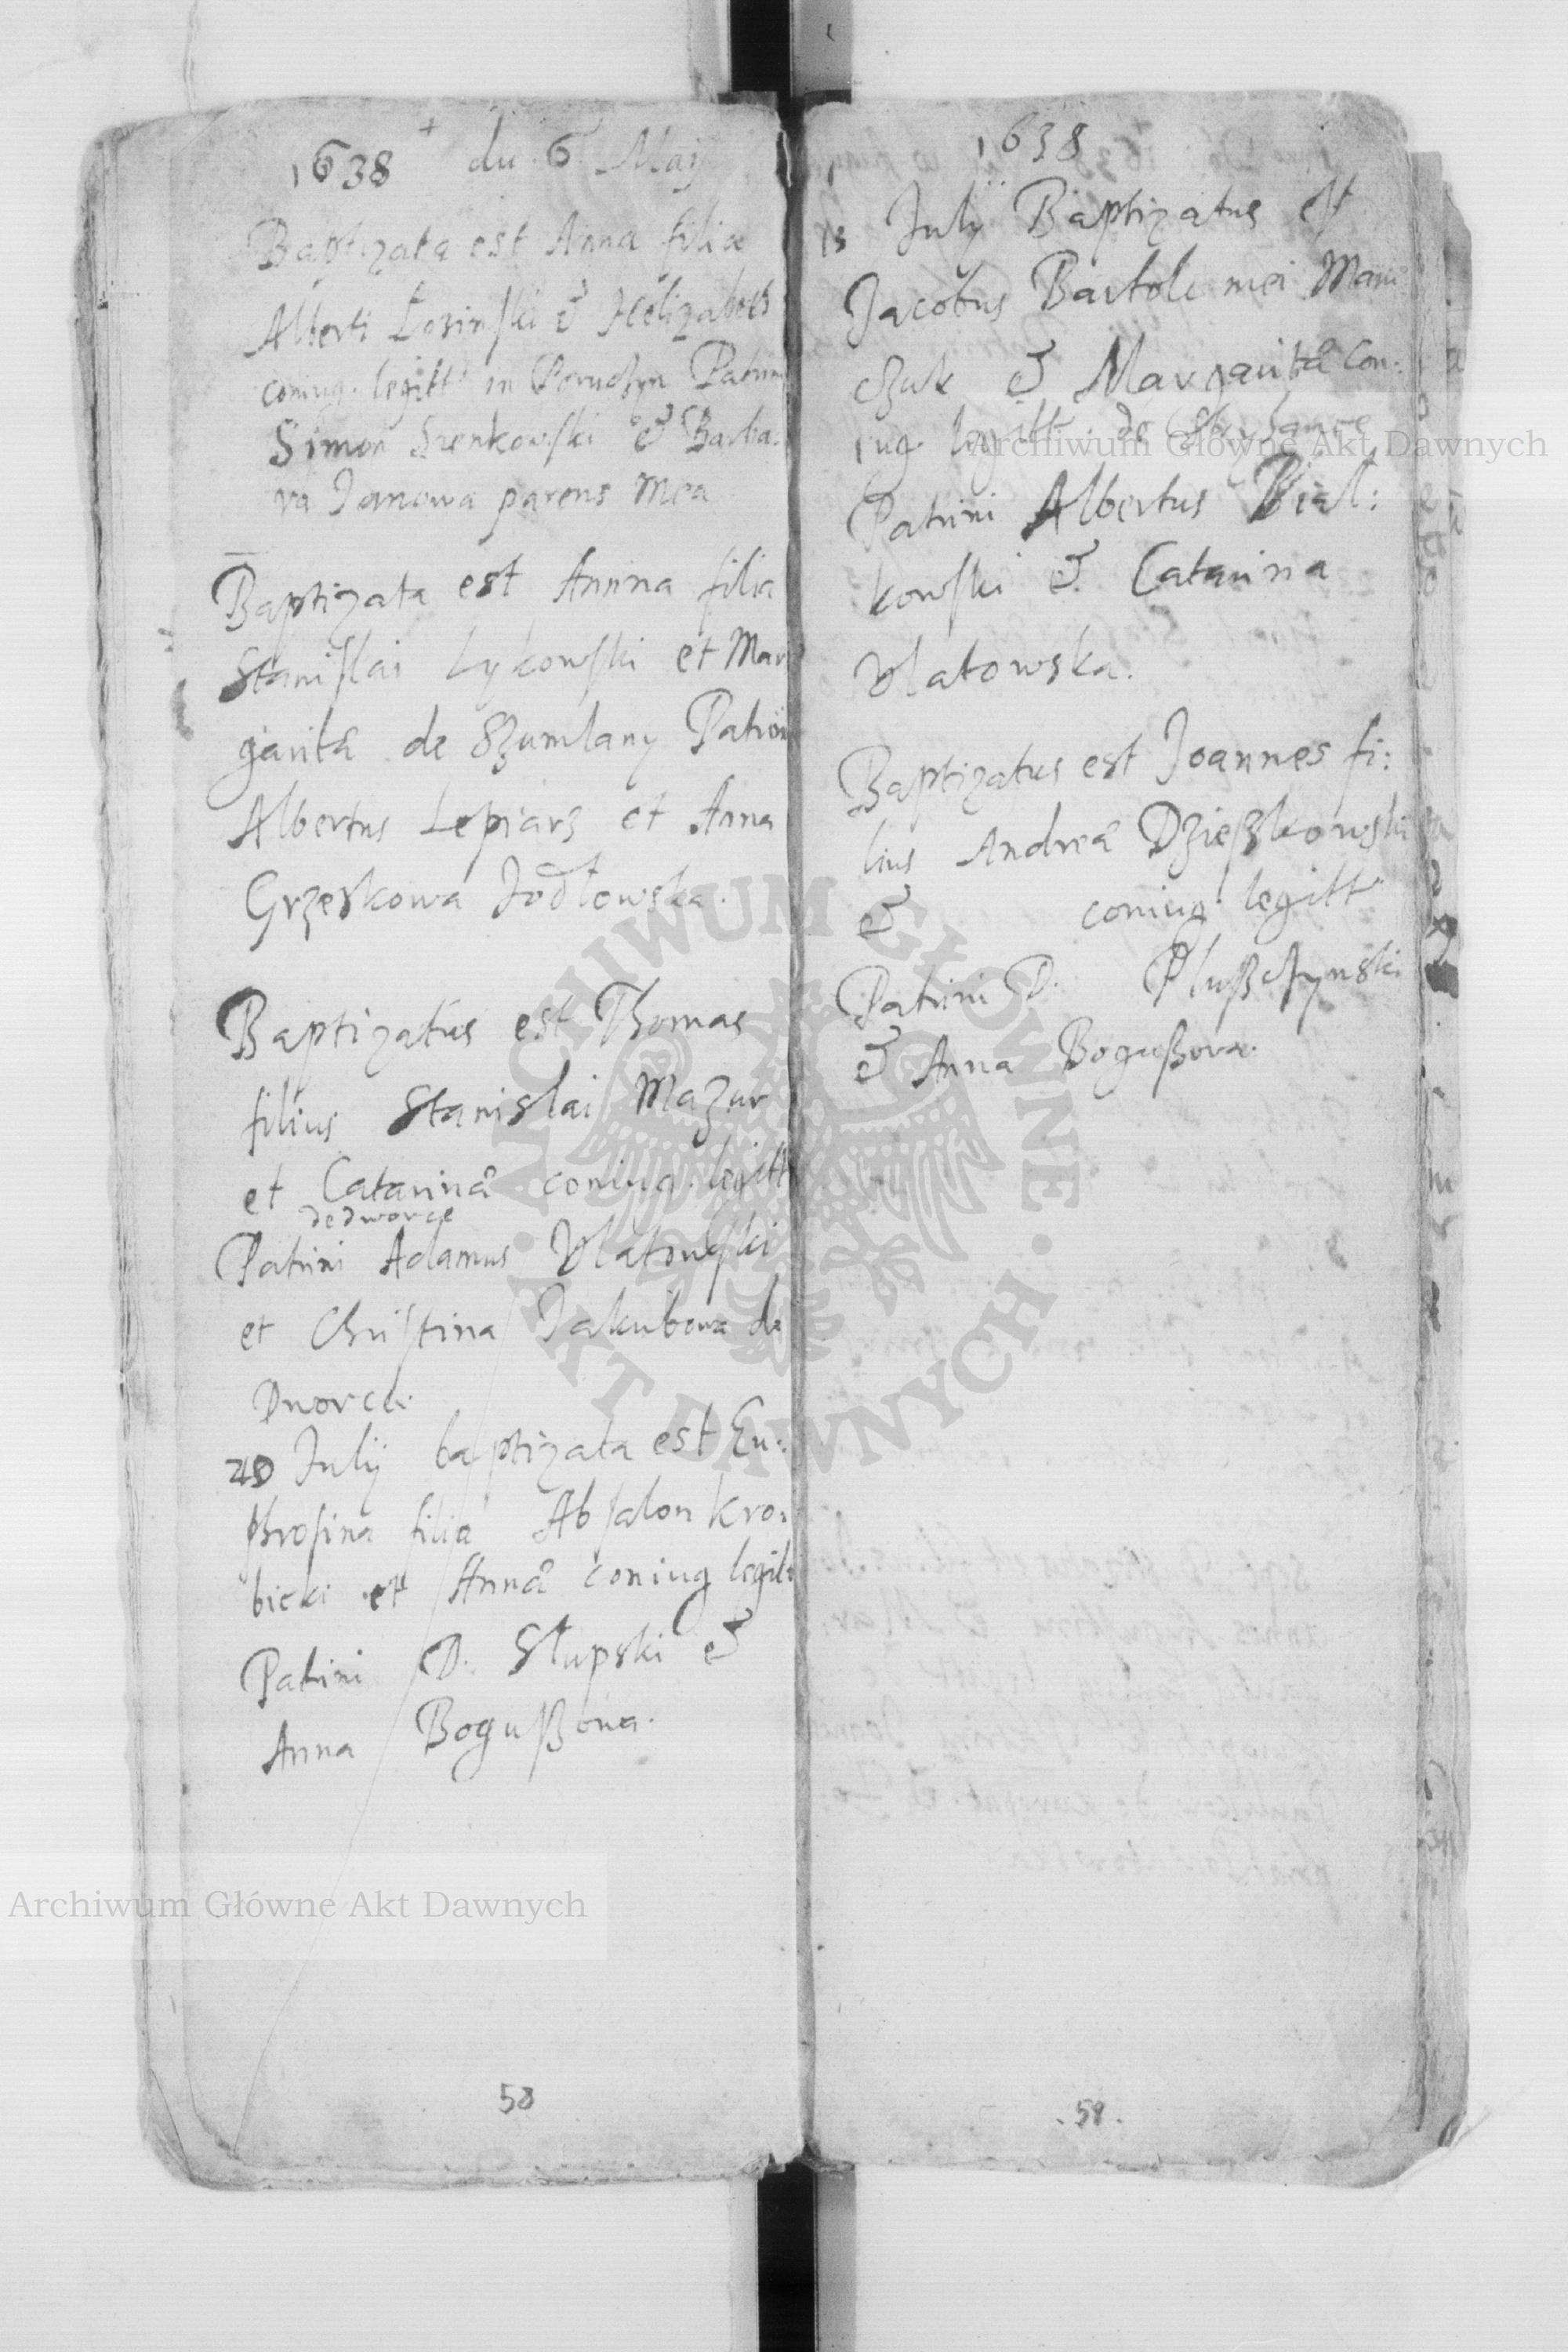 1638 + du 6 Maij
Baptizata est Anna filia
Alberti Losinski & Helizabeth
coniug. legitt in Patrini
Simon Srenkowski & Barba:
ra Janowa parens mea
Baptizata est Annna filia
Stanislai Lykowski et Mar
garitæ de Szumlany Patrini
Albertus Lepiarz et Anna
Grzeskowa Jodłowska.
Baptizatus est Thomas
filius Stanislai Mazur
et Catarinæ coniug. legitt
de dworce
Patrini Adamus Vlatowski
et Christina Jakubowa de
Dworce.
Julij baptizata est Eu:
phrosina filia Absalon Kro:
bicki et Annæ coniug legit:
Patrini D. Słupski &
Anna Bogußowa.
58
1638
Julij Baptizatus est
Jacobus Bartolomei Mani
czuk & Margaritæ Con:
iug legitt. de
Patrini Albertus Bial:
kowski & Catarina
Vlatowska.
Baptizatus est Joannes fi:
lius Andreæ Dzießkowski
& coniug legitt
Patrini D. Plußczynski
& Anna Bogußowa.
59.
Archiwum Główne Akt Dawnych
Archiwum Główne Akt Dawnych
ARCHIWUM GŁÓWNE • AKT DAWNYCH •